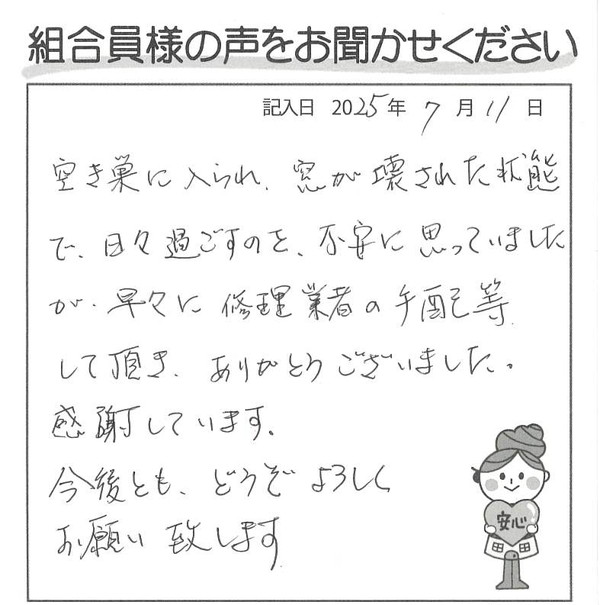 組合員様の声をお聞かせください
記入日 2025年 7月 11日
空き巣に入られ、窓が壊された状態
で、日々過ごすのを、不安に思っていました
が、早々に修理業者の手配等
して頂き、ありがとうございました。
感謝しています。
今後とも、どうぞよろしく
お願い致します
安心